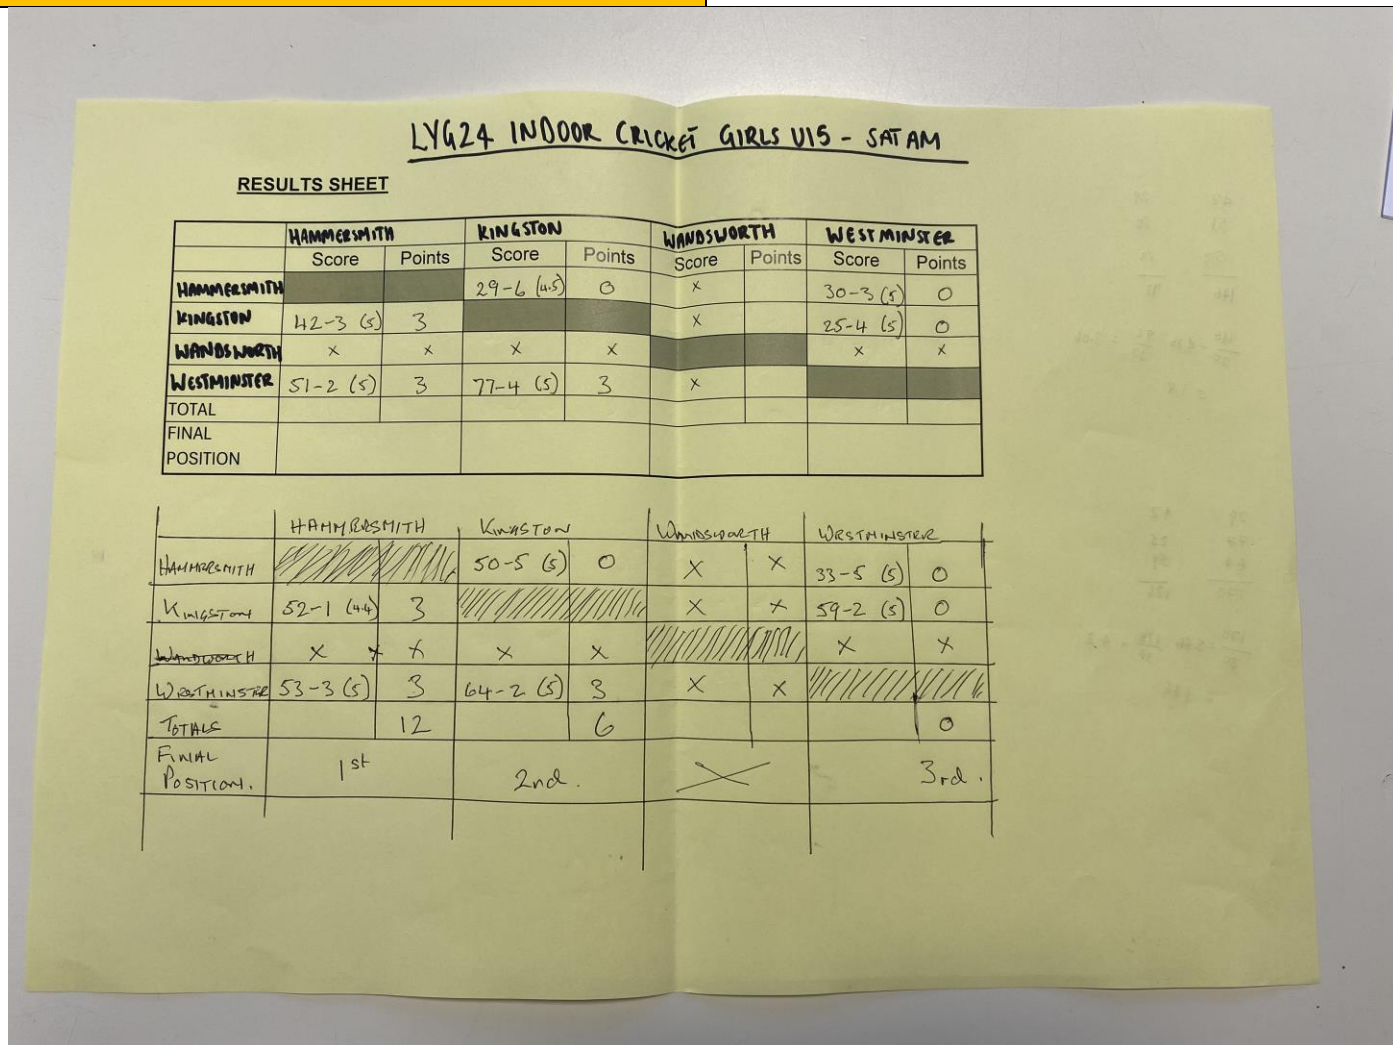 LYG24 INDOOR CRICKET GIRLS U15 - SAT AM
RESULTS SHEET
HAMMERSMITH KINGSTON WANDSWORTH WESTMINSTER
Score Points Score Points Score Points Score Points
HAMMERSMITH 29-6 (4.5) 0 x 30-3 (5) 0
KINGSTON 42-3 (5) 3 x 25-4 (5) 0
WANDSWORTH x x x x x x
WESTMINSTER 51-2 (5) 3 77-4 (5) 3 x
TOTAL
FINAL
POSITION
HAMMERSMITH KINGSTON WANDSWORTH WESTMINSTER
HAMMERSMITH 50-5 (5) 0 x x 33-5 (5) 0
KINGSTON 52-1 (4.4) 3 x x 59-2 (5) 0
WANDWORTH x x x x x x x
WESTMINSTER 53-3 (5) 3 64-2 (5) 3 x x
TOTALS 12 6 0
FINAL
POSITION. 1st 2nd. 3rd.